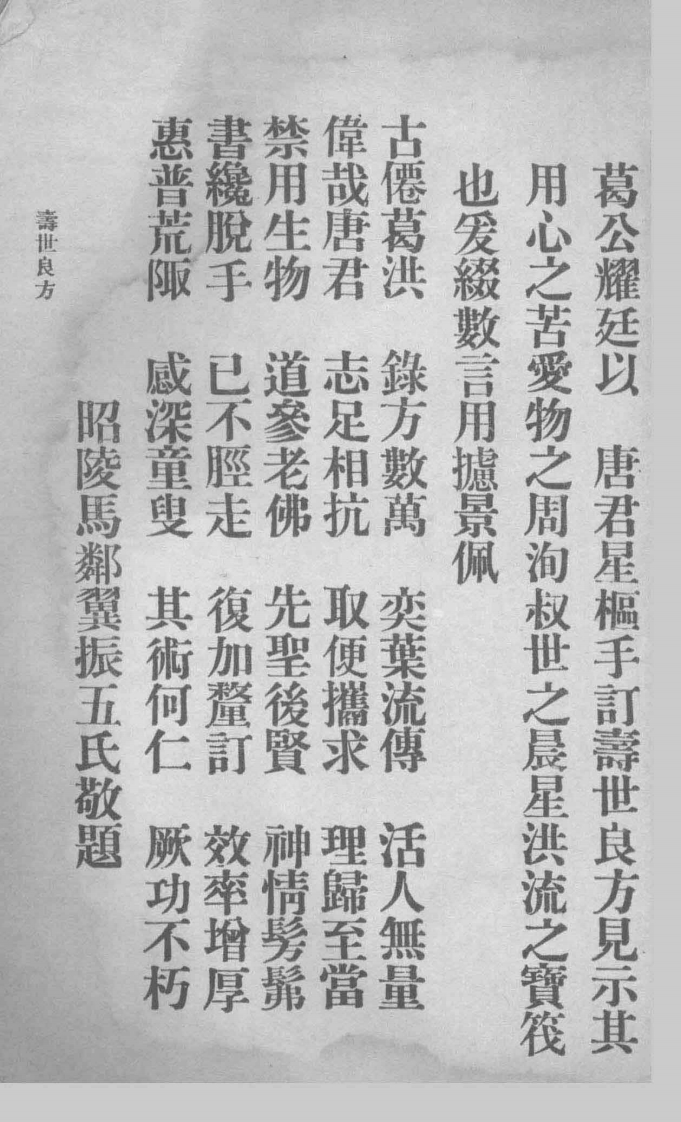 葛公耀廷以　唐君星樞手訂壽世良方見示其
用心之苦愛物之周洵叔世之晨星洪流之寶筏
也爰綴數言用攄景佩
古僊葛洪　錄方數萬　奕葉流傳　活人無量
偉哉唐君　志足相抗　取便攜求　理歸至當
禁用生物　道參老佛　先聖後賢　神情髣髴
書纔脫手　已不脛走　復加釐訂　效率增厚
惠普荒陬　感深童叟　其術何仁　厥功不朽
昭陵馬鄰翼振五氏敬題
壽世良方